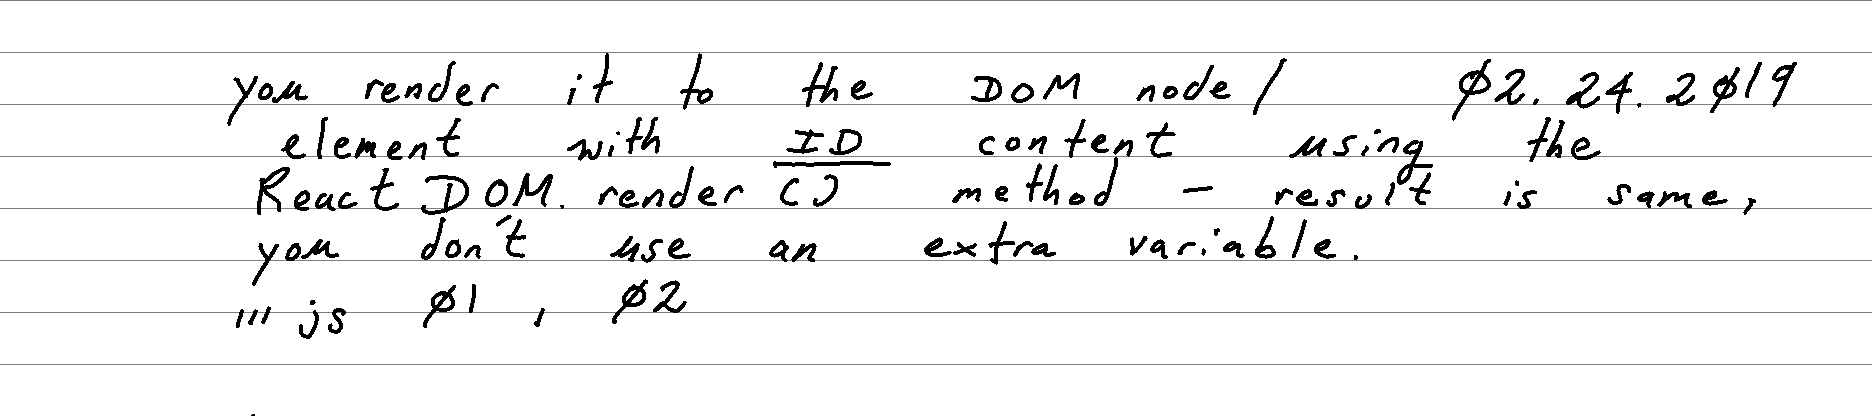 you render it to the DOM node/ 02.24.2019
element with ID content using the
ReactDOM.render() method - result is same,
you don't use an extra variable.
''' js 01, 02